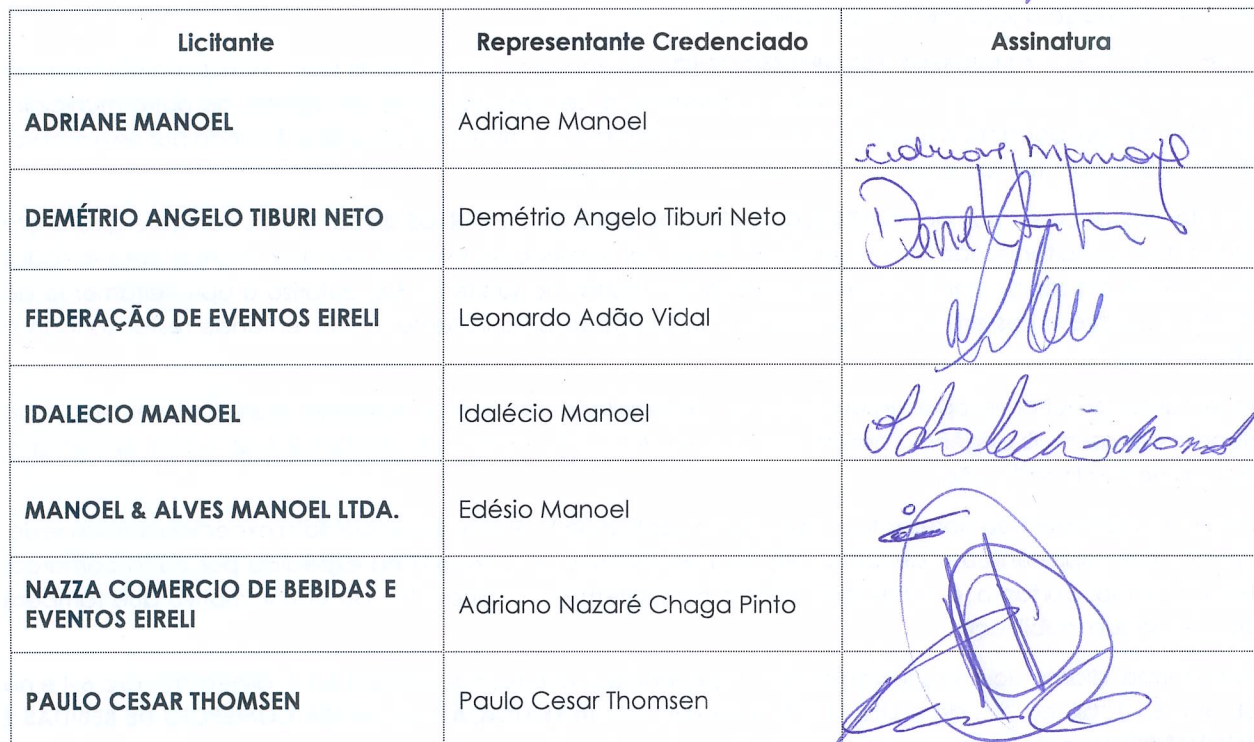 Licitante Representante Credenciado Assinatura
ADRIANE MANOEL Adriane Manoel Adriane Manoel
DEMÉTRIO ANGELO TIBURI NETO Demétrio Angelo Tiburi Neto
FEDERAÇÃO DE EVENTOS EIRELI Leonardo Adão Vidal
IDALECIO MANOEL Idalécio Manoel
MANOEL & ALVES MANOEL LTDA. Edésio Manoel
NAZZA COMERCIO DE BEBIDAS E
EVENTOS EIRELI Adriano Nazaré Chaga Pinto
PAULO CESAR THOMSEN Paulo Cesar Thomsen